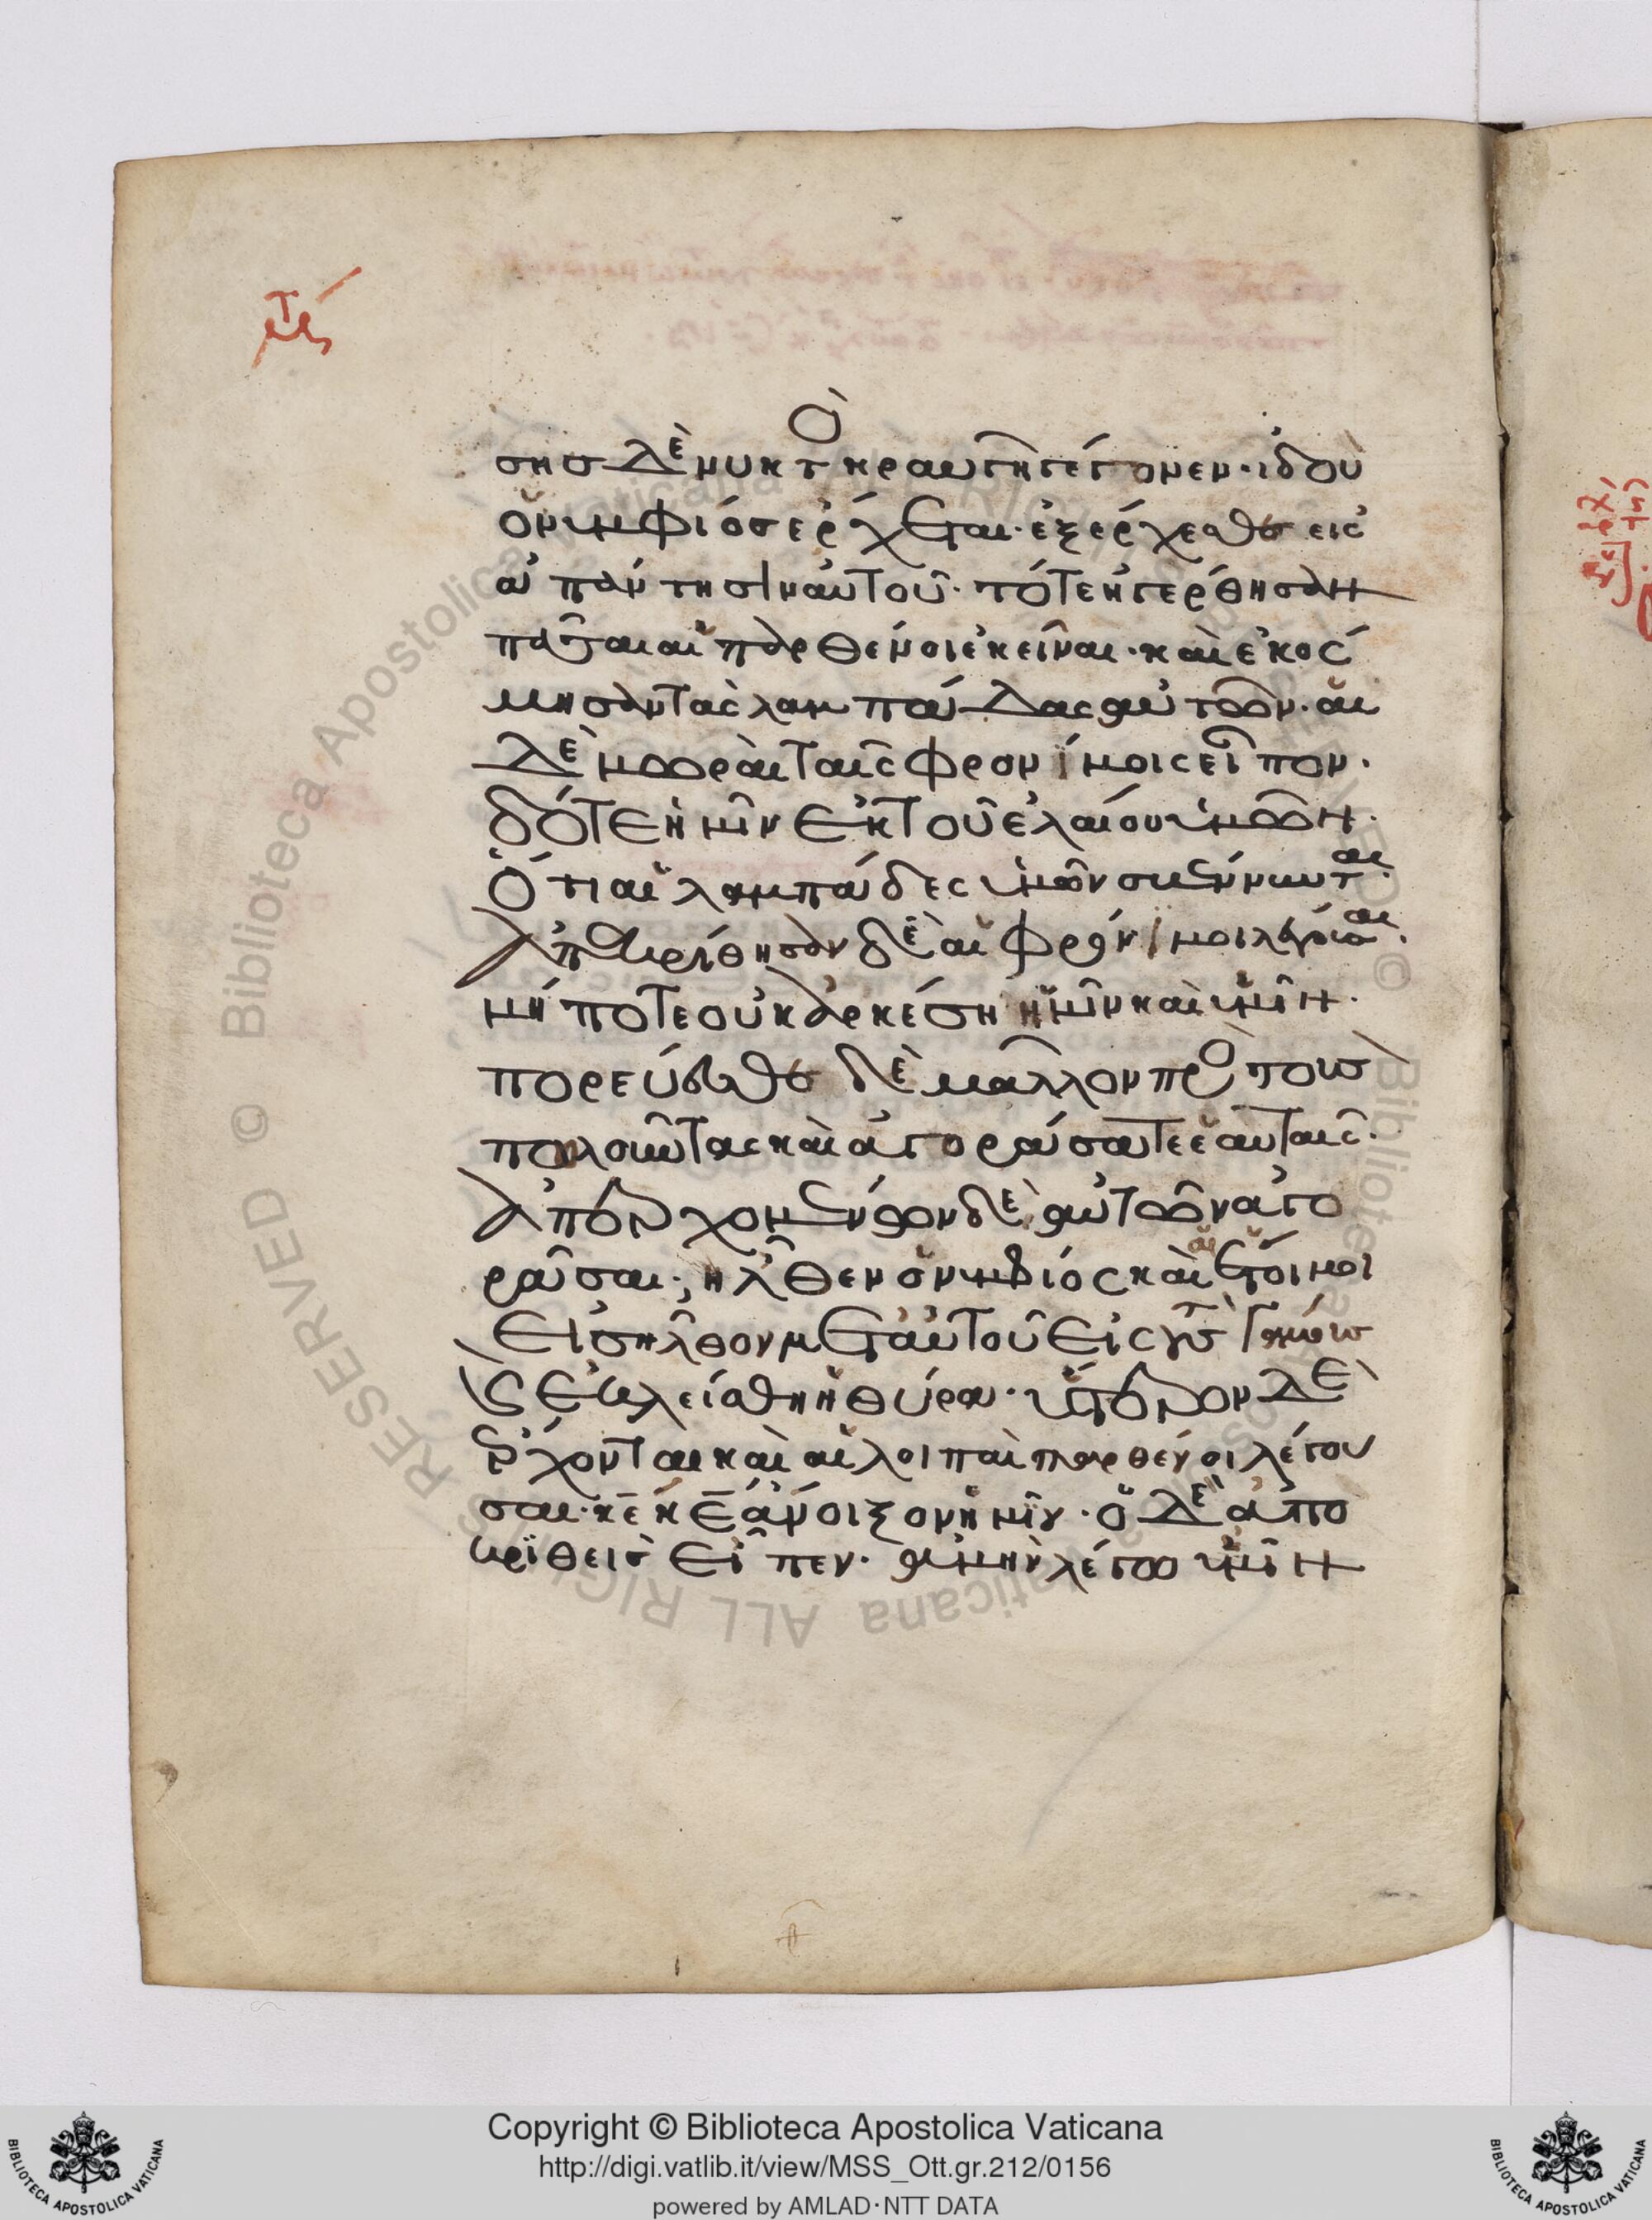 σης δὲ νυκτ(ὸς) κραυγὴ γέγονεν· ἰδοὺ
ὁ νυμφίος ἔρχεται· ἐξέρχεσθε εἰς
ἀπάντησιν αὐτοῦ· τότε ἠγέρθησαν
πᾶσαι αἱ παρθένοι ἐκεῖναι· καὶ ἐκόσ
μησαν τὰς λαμπάδας αὐτῶν· αἱ
δὲ μωραὶ ταῖς φρονίμοις εἶπον·
δότε ἡμῖν ἐκ τοῦ ἐλαίου ὑμῶν·
ὅτι αἱ λαμπάδες ἡμῶν σβέννυνται·
ἀπεκρίθησαν δὲ αἱ φρόνιμοι λέγουσαι·
μήποτε οὐκ ἀρκέσῃ ἡμῖν καὶ ὑμῖν·
πορεύεσθε δὲ μᾶλλον πρὸς τοὺς
πωλοῦντας καὶ ἀγοράσατε ἑαυταῖς·
ἀπερχομένων δὲ αὐτῶν ἀγο
ράσαι· ἦλθεν ὁ νυμφίος καὶ αἱ ἕτοιμοι
εἰσῆλθον μετ αὐτοῦ εἰς τοὺς γάμους
καὶ ἐκλείσθη ἡ θύρα· ὕστερον δὲ
ἔρχονται καὶ αἱ λοιπαὶ παρθένοι λέγου
σαι· κε κε ἄνοιξον ἡμῖν· ὁ δὲ ἀπο
κριθεὶς εἶπεν· ἀμὴν λέγω ὑμῖν
Copyright © Biblioteca Apostolica Vaticana
http://digi.vatlib.it/view/MSS_Ott.gr.212/0156
powered by AMLAD·NTT DATA